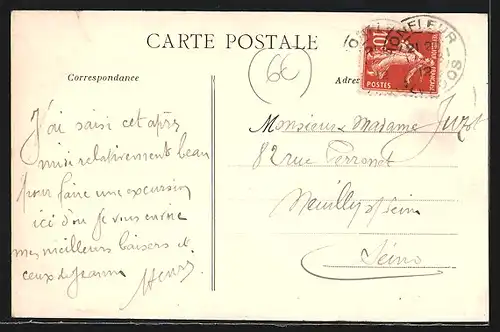 CARTE POSTALE
Correspondance
Adres
(6C)
HONFLEUR
10
POSTES
J'ai saisi cet après
midi relativement beau
pour faire une excursion
ici d'où je vous envoie
mes meilleurs baisers et
ceux de Jeanne
Henri
Monsieur Madame Juzot
82 rue Perronet
Neuilly s/ Seine
Seine